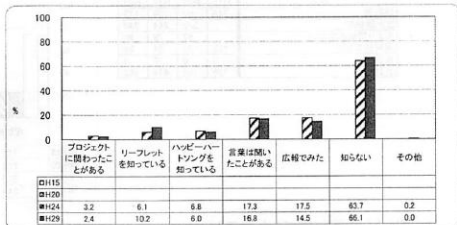 100
80
60
40
20
0
%
プロジェクトに関わったことがある
リーフレットを知っている
ハッピーハートソングを知っている
言葉は聞いたことがある
広報でみた
知らない
その他
H15
H20
H24 3.2 6.1 6.8 17.3 17.5 63.7 0.2
H29 2.4 10.2 6.0 16.8 14.5 66.1 0.0